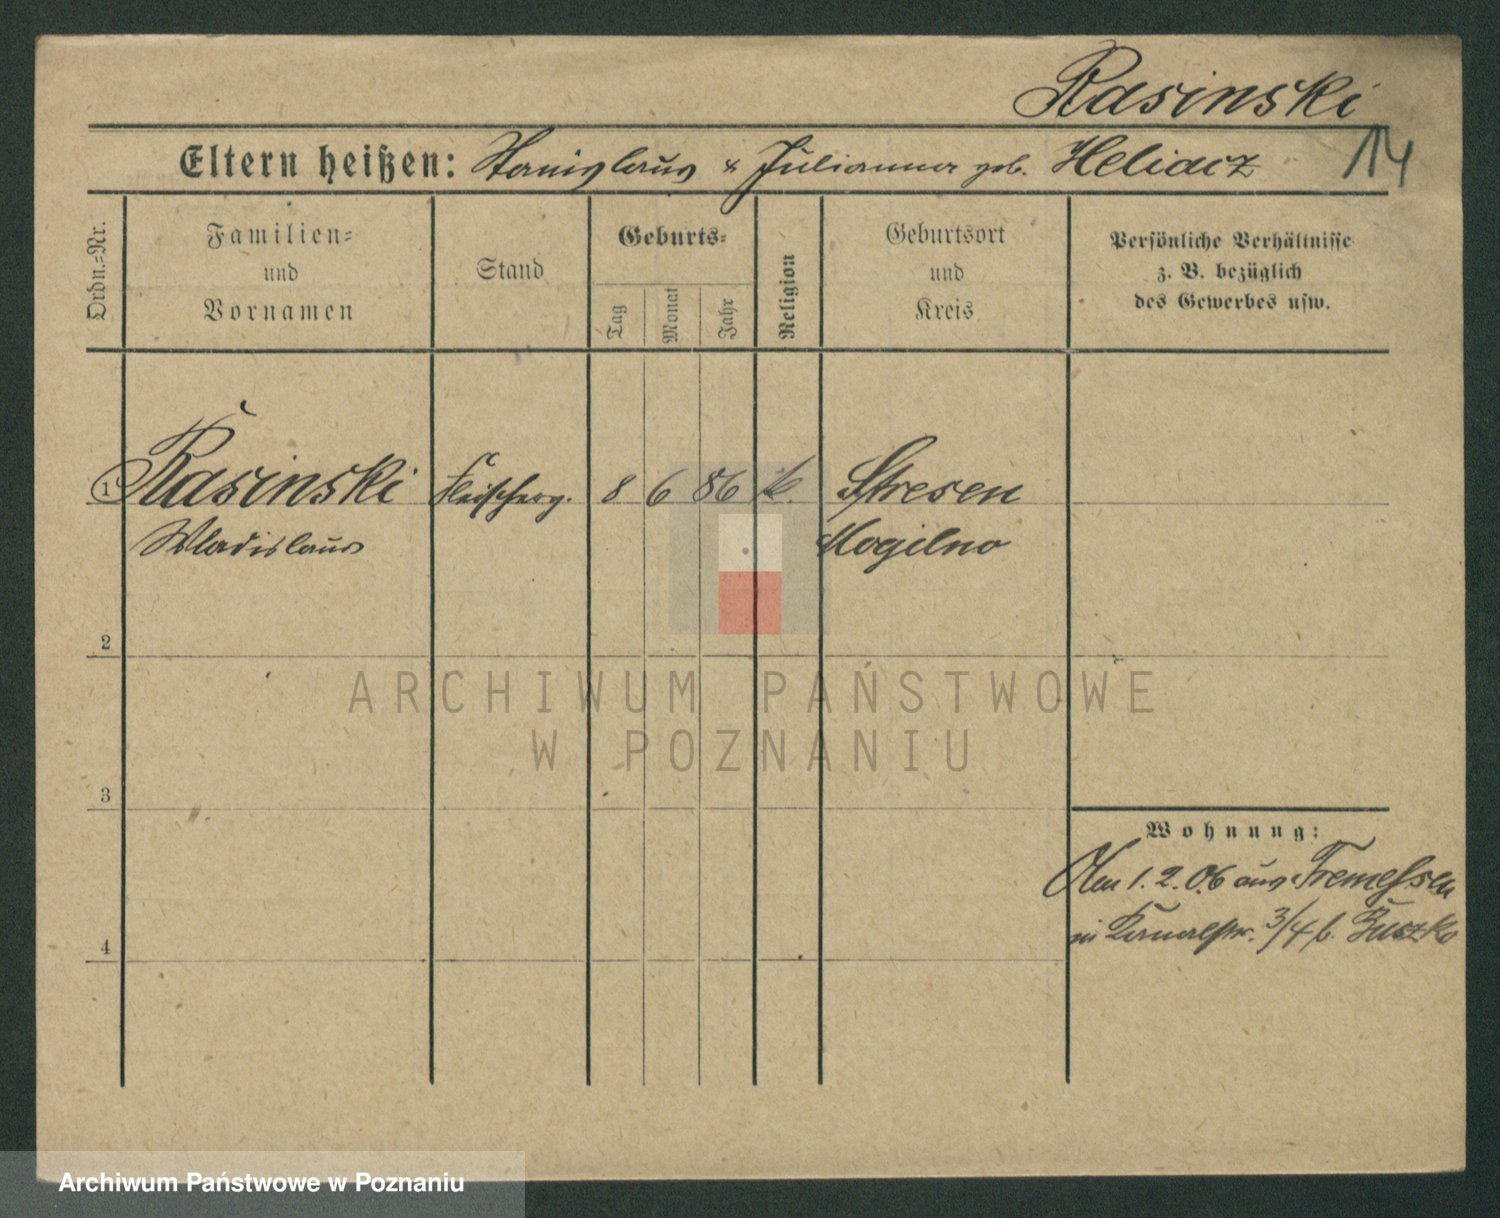 Rasinski
14
Eltern heißen: Stanislaus & Julianna geb. Heliacz
Ordn.-Nr.
Familien-
und
Vornamen
Stand
Geburts-
Tag
Monat
Jahr
Religion
Geburtsort
und
Kreis
Persönliche Verhältnisse
z. B. bezüglich
des Gewerbes usw.
1 Rasinski Fleischerg. 8 6 86 k. Stresen
Wladislaus Mogilno
2
ARCHIWUM PAŃSTWOWE
W POZNANIU
3
Wohnung:
Den 1.2.06 aus Tremessen
in Kanalstr. 3/4 b.
4
Archiwum Państwowe w Poznaniu